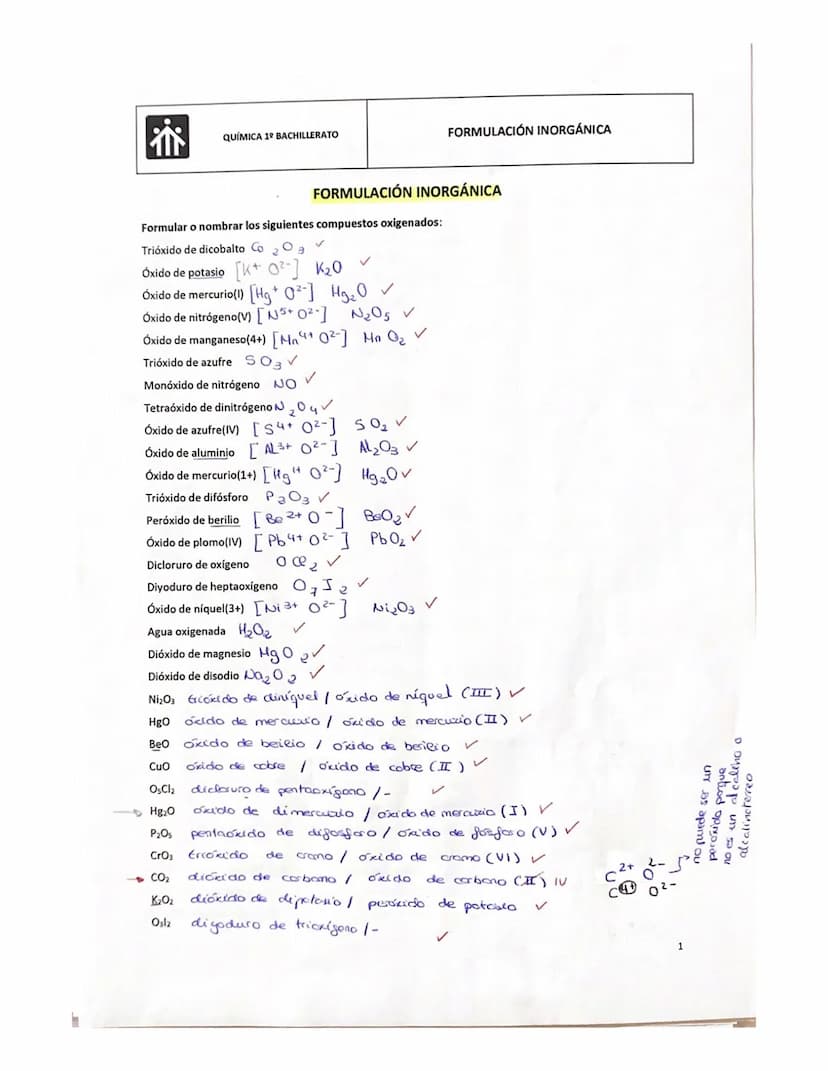 QUÍMICA 1º BACHILLERATO
FORMULACIÓN INORGÁNICA
FORMULACIÓN INORGÁNICA
Formular o nombrar los siguientes compuestos oxigenados:
Trióxido de dicobalto Co₂O₃ ✓
Óxido de potasio [K⁺ O²⁻] K₂O ✓
Óxido de mercurio(I) [Hg⁺ O²⁻] Hg₂O ✓
Óxido de nitrógeno(V) [N⁵⁺ O²⁻] N₂O₅ ✓
Óxido de manganeso(4+) [Mn⁴⁺ O²⁻] MnO₂ ✓
Trióxido de azufre SO₃ ✓
Monóxido de nitrógeno NO ✓
Tetraóxido de dinitrógeno N₂O₄ ✓
Óxido de azufre(IV) [S⁴⁺ O²⁻] SO₂ ✓
Óxido de aluminio [Al³⁺ O²⁻] Al₂O₃ ✓
Óxido de mercurio(1+) [Hg¹⁺ O²⁻] Hg₂O ✓
Trióxido de difósforo P₂O₃ ✓
Peróxido de berilio [Be²⁺ O⁻] BeO₂ ✓
Óxido de plomo(IV) [Pb⁴⁺ O²⁻] PbO₂ ✓
Dicloruro de oxígeno OCl₂ ✓
Diyoduro de heptaoxígeno O₇I₂ ✓
Óxido de níquel(3+) [Ni³⁺ O²⁻] Ni₂O₃ ✓
Agua oxigenada H₂O₂ ✓
Dióxido de magnesio MgO₂ ✓
Dióxido de disodio Na₂O₂ ✓
Ni₂O₃ trióxido de diníquel / óxido de níquel (III) ✓
HgO óxido de mercurio / óxido de mercurio (II) ✓
BeO óxido de berilio / óxido de berilio ✓
CuO óxido de cobre / óxido de cobre (II) ✓
O₅Cl₂ dicloruro de pentaoxígeno /- ✓
→ Hg₂O óxido de dimercurio / óxido de mercurio (I) ✓
P₂O₅ pentaóxido de difósforo / óxido de fósforo (V) ✓
CrO₃ trióxido de cromo / óxido de cromo (VI) ✓
→ CO₂ dióxido de carbono / óxido de carbono (II) IV
K₂O₂ dióxido de dipotasio / peróxido de potasio ✓
O₃I₂ diyoduro de trioxígeno /- ✓
C²⁺ O²⁻
C⁴⁺ O²⁻
no puede ser un
peróxido porque
no es un alcalino o
alcalinotérreo
1